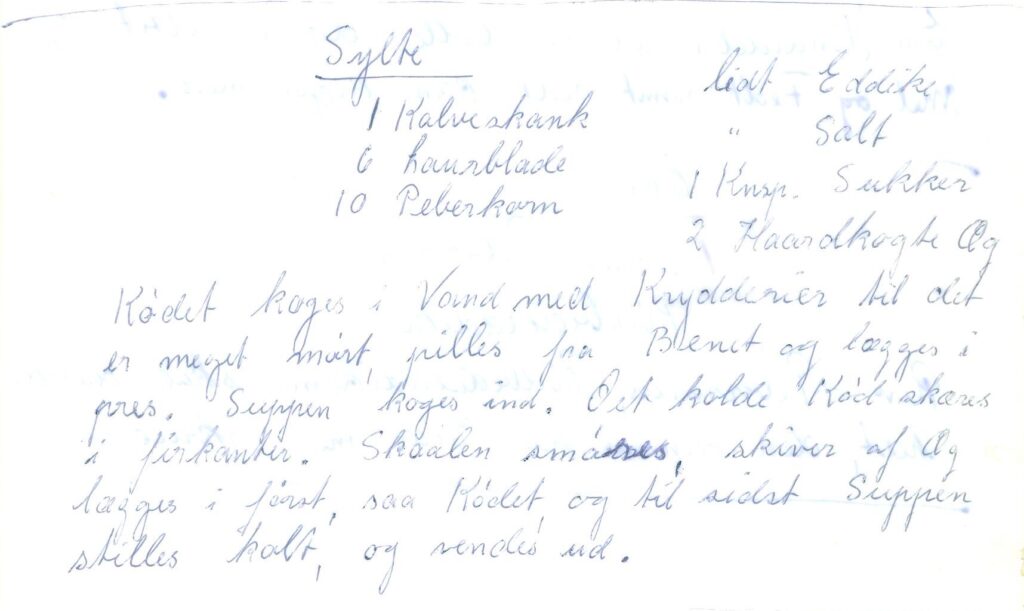 Sylte
1 Kalveskank
6 Laurblade
10 Peberkorn
lidt Eddike
" Salt
1 Knsp. Sukker
2 Haardkogte Æg
Kødet koges i Vand med Krydderier til det
er meget mørt, pilles fra Benet og lægges i
pres. Suppen koges ind. Det kolde Kød skæres
i firkanter. Skaalen smøres, skiver af Æg
lægges i først, saa Kødet, og til sidst Suppen
stilles kalt, og vendes ud.